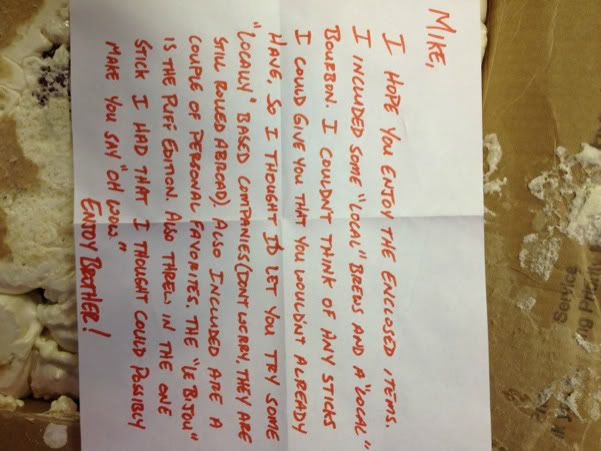 MIKE,
I HOPE YOU ENJOY THE ENCLOSED ITEMS.
I INCLUDED SOME "LOCAL" BREWS AND A "LOCAL"
BOURBON. I COULDN'T THINK OF ANY STICKS
I COULD GIVE YOU THAT YOU WOULDN'T ALREADY
HAVE, SO I THOUGHT I'D LET YOU TRY SOME
"LOCALLY" BASED COMPANIES (DON'T WORRY, THEY ARE
STILL ROLLED ABROAD). ALSO INCLUDED ARE A
COUPLE OF PERSONAL FAVORITES. THE "LE BIJOU"
IS THE PUFF EDITION. ALSO THREW IN THE ONE
STICK I HAD THAT I THOUGHT COULD POSSIBLY
MAKE YOU SAY "OH WOW"
ENJOY BROTHER!